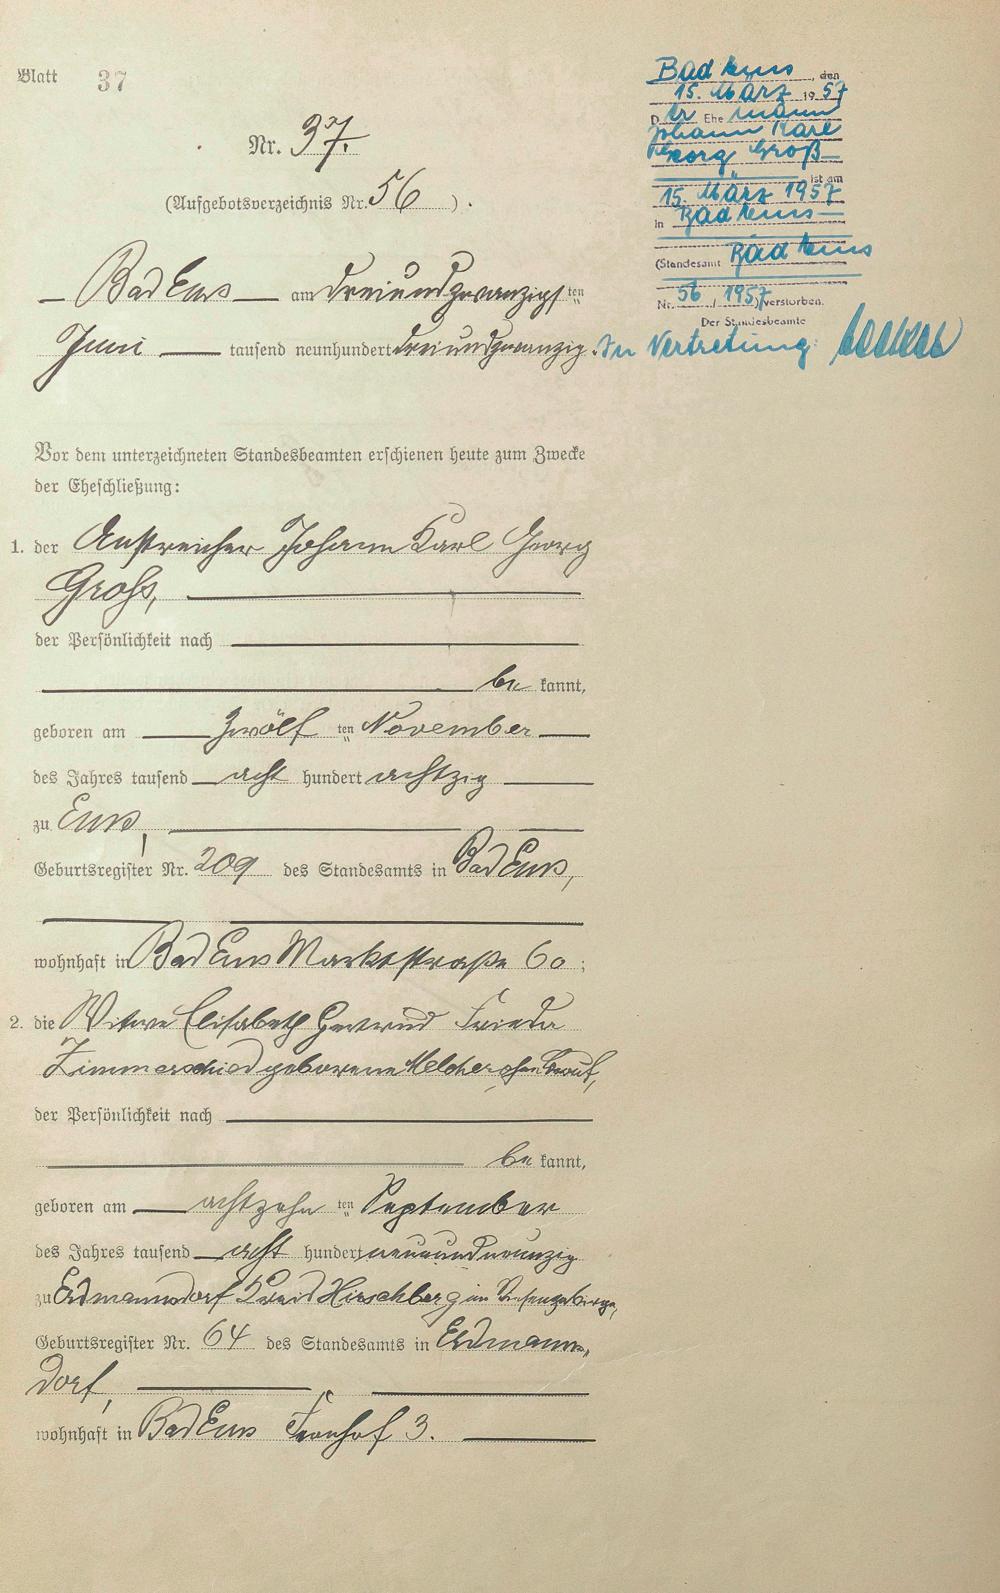 Blatt 37
Nr. 37.
(Aufgebotsverzeichnis Nr. 56 ).
Bad Ems am dreiundzwanzigsten
Juni tausend neunhundert dreiundzwanzig.
Bad Ems, den
15. März 1957
Der Ehemann
Johann Karl
Georg Groß
ist am
15. März 1957
in Bad Ems
(Standesamt Bad Ems
Nr. 56 / 1957) verstorben.
Der Standesbeamte
In Vertretung:
Vor dem unterzeichneten Standesbeamten erschienen heute zum Zwecke
der Eheschließung:
1. der Anstreicher Johann Karl Georg
Groß,
der Persönlichkeit nach
be kannt,
geboren am zwölf ten November
des Jahres tausend acht hundert achtzig
zu Ems,
Geburtsregister Nr. 209 des Standesamts in Bad Ems,
wohnhaft in Bad Ems Marktstraße 60;
2. die Witwe Elisabeth Gertrud Frieda
Zimmerschied geborene Melcher, ohne Beruf,
der Persönlichkeit nach
be kannt,
geboren am achtzehn ten September
des Jahres tausend acht hundert neunundneunzig
zu Erdmannsdorf Kreis Hirschberg im Riesengebirge,
Geburtsregister Nr. 64 des Standesamts in Erdmanns-
dorf,
wohnhaft in Bad Ems 3.